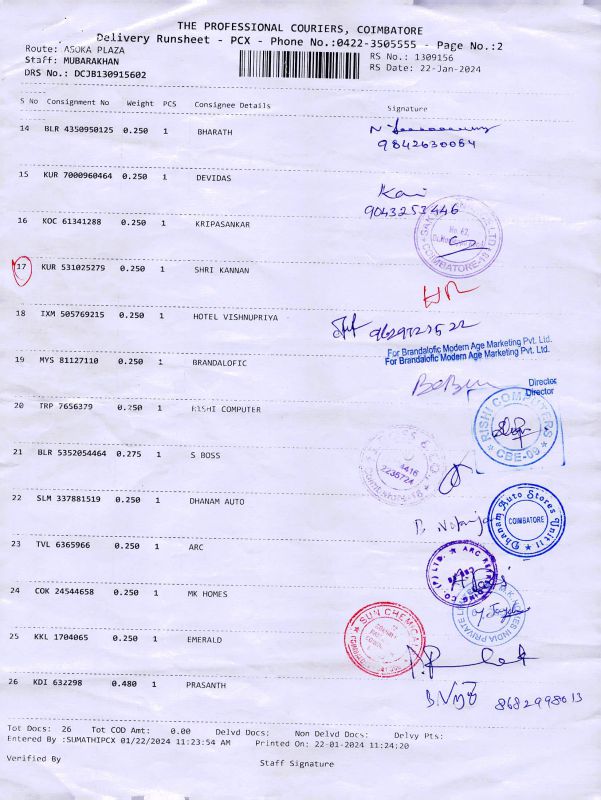 THE PROFESSIONAL COURIERS, COIMBATORE
Delivery Runsheet - PCX - Phone No.:0422-3505555 - Page No.:2
Route: ASOKA PLAZA
RS No.: 1309156
Staff: MUBARAKHAN
RS Date: 22-Jan-2024
DRS No.: DCJB130915602
S No Consignment No Weight PCS Consignee Details Signature
14 BLR 4350950125 0.250 1 BHARATH
9842630064
15 KUR 7000960464 0.250 1 DEVIDAS
9043253446
16 KOC 61341288 0.250 1 KRIPASANKAR
No. 62,
COIMBATORE-18
17 KUR 531025279 0.250 1 SHRI KANNAN
18 IXM 505769215 0.250 1 HOTEL VISHNUPRIYA
For Brandalofic Modern Age Marketing Pvt. Ltd.
For Brandalofic Modern Age Marketing Pvt. Ltd.
19 MYS 81127110 0.250 1 BRANDALOFIC
Director
Director
20 TRP 7656379 0.250 1 RISHI COMPUTER
RISHI COMPUTERS
CBE-09
21 BLR 5352054464 0.275 1 S BOSS
4416
2235724
22 SLM 337881519 0.250 1 DHANAM AUTO
Dhanam Auto Stores Unit II
COIMBATORE
23 TVL 6365966 0.250 1 ARC
24 COK 24544658 0.250 1 MK HOMES
25 KKL 1704065 0.250 1 EMERALD
SUN CHEMICAL
26 KDI 632298 0.480 1 PRASANTH
8682998613
Tot Docs: 26 Tot COD Amt: 0.00 Delvd Docs: Non Delvd Docs: Delvy Pts:
Entered By :SUMATHIPCX 01/22/2024 11:23:54 AM Printed On: 22-01-2024 11:24:20
Verified By Staff Signature